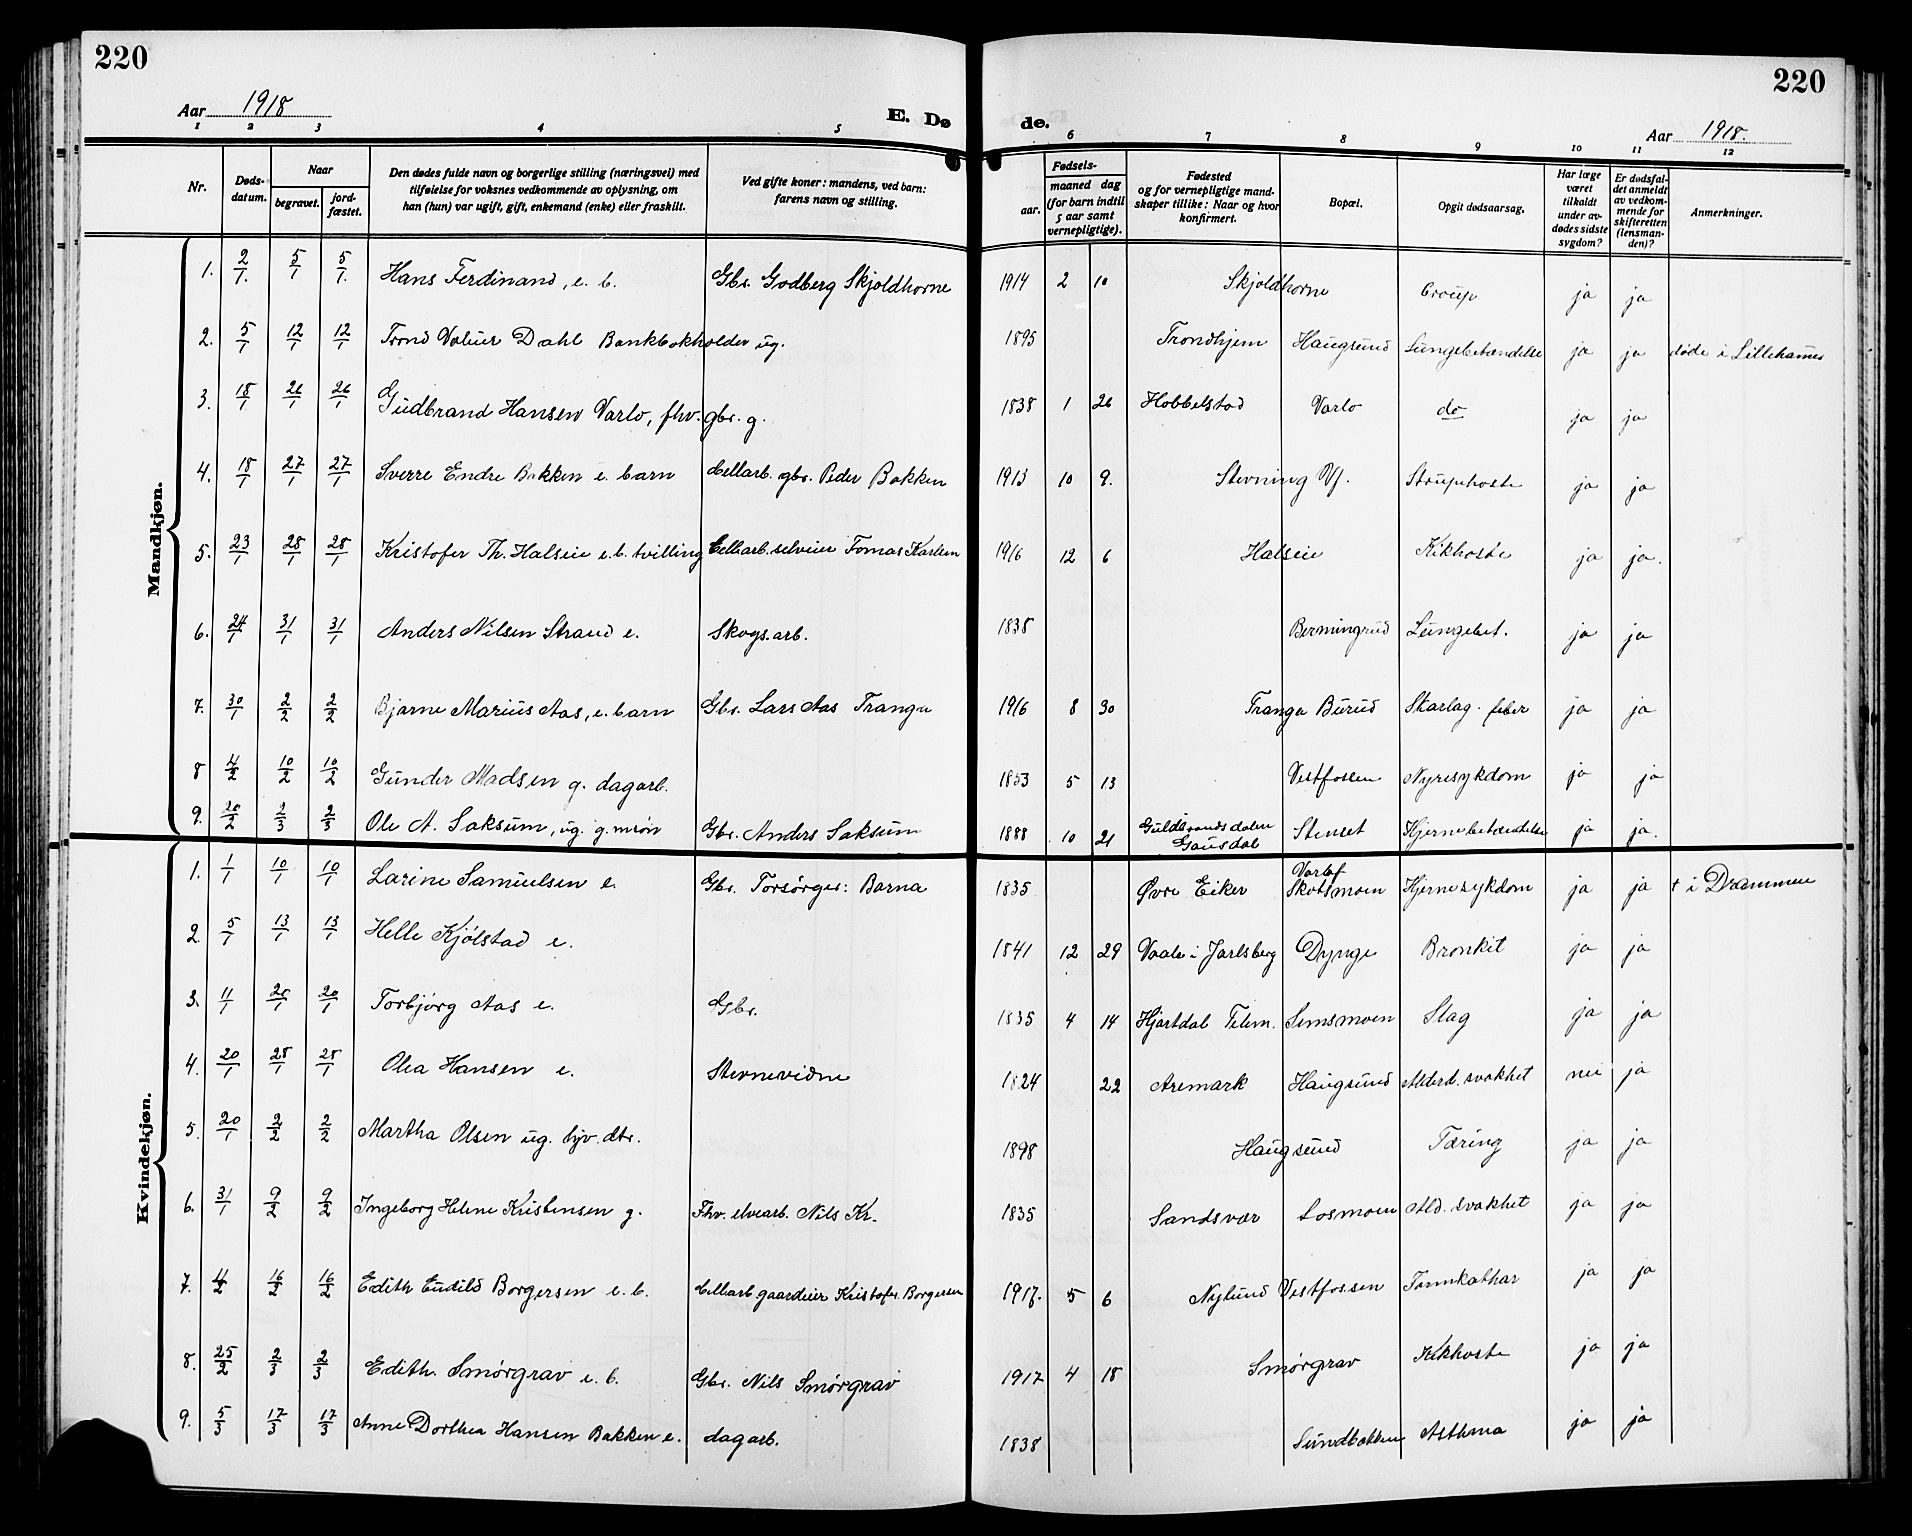 220
220
Aar 1918
E. Dø
de.
Aar 1918.
1 2 3 4 5 6 7 8 9 10 11 12
Nr. Døds-datum. Naar begravet. jord-fæstet. Den dødes fulde navn og borgerlige stilling (næringsvei) med tilføielse for voksnes vedkommende av oplysning, om han (hun) var ugift, gift, enkemand (enke) eller fraskilt. Ved gifte koner: mandens, ved barn: farens navn og stilling. Fødsels- aar. maaned dag (for barn indtil 5 aar samt vernepligtige). Fødested og for vernepligtige mandskaper tillike: Naar og hvor konfirmert. Bopæl. Opgit dødsaarsag. Har læge været tilkaldt under avdødes sidste sygdom? Er dødsfaldet anmeldt av vedkommende for skifteretten (lensmanden)? Anmerkninger.
Mandkjøn.
1. 2/1. 5/1 5/1. Hans Ferdinand, e. b. Gbr. Godberg Skjoldhorne 1914 2 10 Skjoldhorne Croup ja ja
2. 5/1 12/1 12/1 Trond Dahl Bankbokholder ug. 1895 Trondhjem Haugsund Lungebetændelse ja ja døde i Lillehamer
3. 18/1 26/1 26/1 Gudbrand Hansen Varlo, fhv. gbr. g. 1838 1 26 Hobbelstad Varlo do ja ja
4. 18/1 27/1 27/1 Sverre Endre Bakken e. barn Cellarb. gbr. Peder Bakken 1913 10 9. Stevning Vf. Struphoste ja ja
5. 23/1 28/1 28/1 Kristofer Th. Halseie e. b. tvilling Cellarb. selveier Tomas Karlsen 1916 12 6 Halseie Kikhoste ja ja.
6. 24/1 31/1 31/1 Anders Nilsen Strand e. Skogs.arb. 1838 Bermingrud Lungebet. ja ja
7. 30/1 2/2 2/2 Bjarne Marius Aas, e. barn Gbr. Lars Aas Tranga 1916 8 30 Tranga Burud Skarlag. feber ja ja
8 4/2 10/2 10/2 Gunder Madsen g. dagarb. 1853 5 13 Vestfossen Nyresykdom ja ja
9. 20/2 2/3 2/3 Ole A. Saksum, ug. g.m.søn Gbr. Anders Saksum 1888 10 21 Guldbrandsdalen Gausdal Stenset Hjernebetændelse ja ja.
Kvindekjøn.
1. 1/1 10/1 10/1 Larine Samuelsen e. Gbr. Forsørges: Barna 1835 Øvre Eiker Varlof Skotsmoen Hjernesykdom ja ja † i Drammen
2. 5/1 13/1 13/1 Helle Kjølstad e. 1841 12 29 Vaale i Jarlsberg Dynge Bronkit ja ja
3. 11/1 20/1 20/1 Torbjørg Aas e. Gbr. 1835 4 14 Hjartdal Telem. Semsmoen Slag ja ja
4. 20/1 28/1 28/1 Olea Hansen e. Stevnevidne 1824 22 Aremark Haugsund Alderd. svakhet nei ja
5. 20/1 2/2 2/2 Martha Olsen ug. hjv. dtr. 1898 Haugsund Tæring ja ja
6. 31/1 9/2 9/2 Ingeborg Helene Kristensen g. Fhv. elvearb. Nils Kr. 1835 Sandsvær Losmoen Ald. svakhet ja ja
7. 4/2 16/2 16/2 Edith Borgersen e. b. Cellarb gaardeier Kristofer Borgersen 1917. 5 6 Nylund Vestfossen Tarmkathar ja ja
8. 25/2 2/3 2/3 Edith. Smørgrav e. b. Gbr. Nils Smørgrav 1917 4 18 Smørgrav Kikhoste ja ja
9. 5/3 17/3 17/3 Anne Dorthea Hansen Bakken e. dagarb. 1838 Sundbakken Asthma ja ja